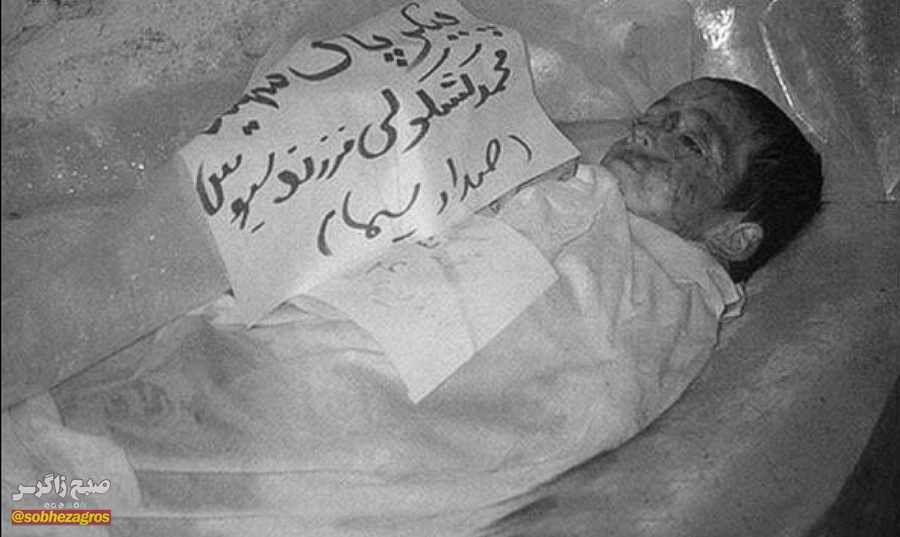 پیکر پاک شهید
محمد کشکولی فرزند سیروس
(صمداد سیما)
صبح زاگرس
@sobhezagros